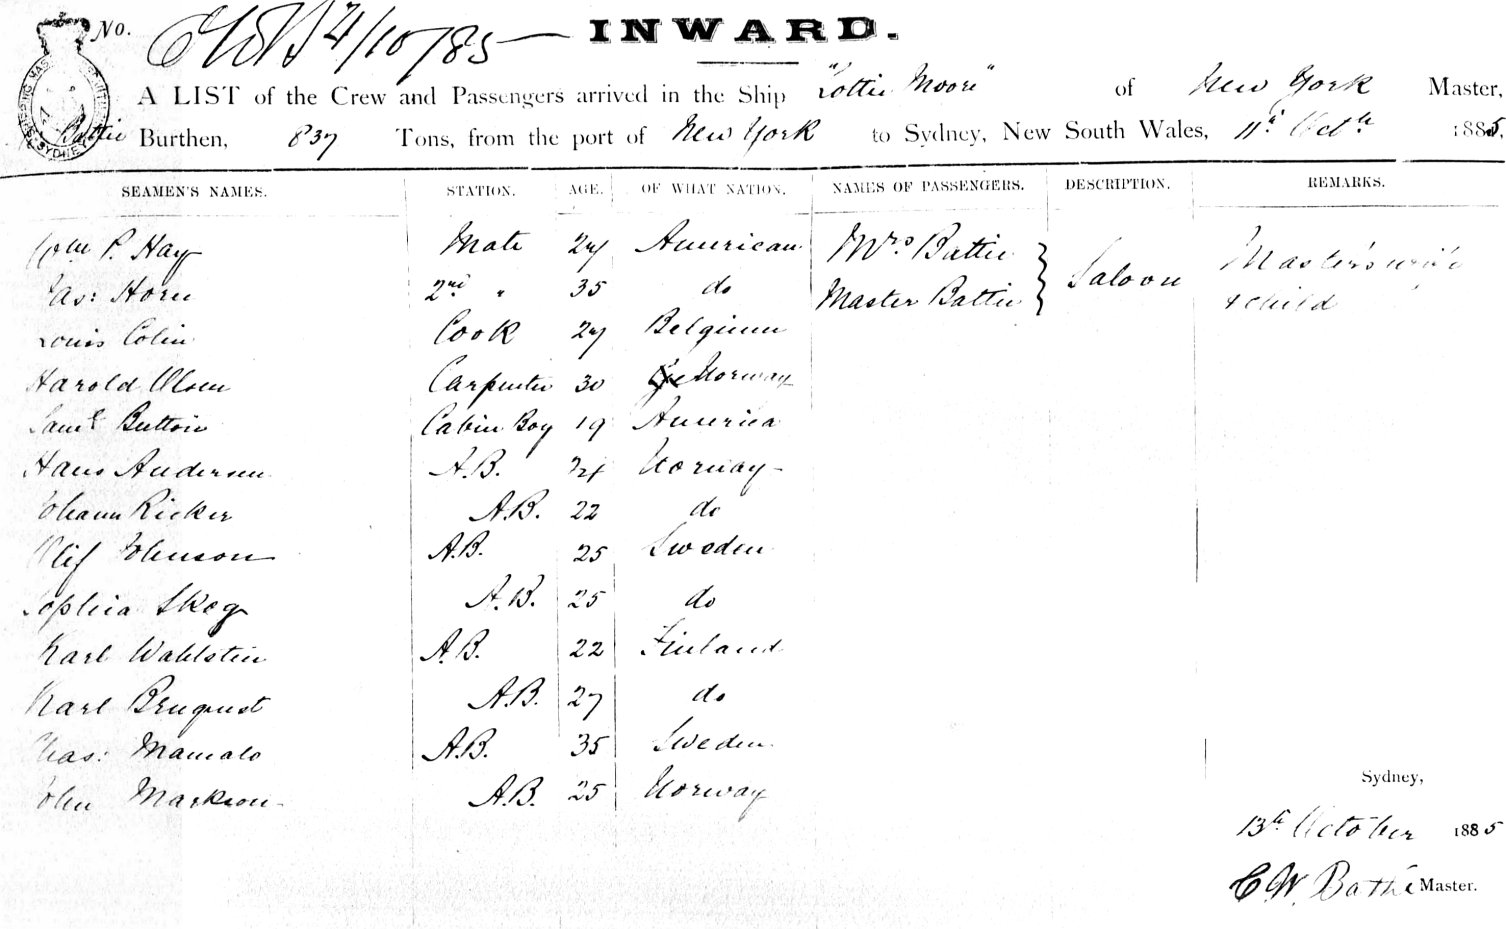 No. INWARD.
A LIST of the Crew and Passengers arrived in the Ship "Lottie Moore" of New York Master,
Battie Burthen, 837 Tons, from the port of New York to Sydney, New South Wales, 11th Octbr 1885,
SEAMEN'S NAMES. STATION. AGE. OF WHAT NATION. NAMES OF PASSENGERS. DESCRIPTION. REMARKS.
Wm P. Hay Mate 27 American Mrs Battie Saloon Master's wife
Jas: Horn 2nd " 35 do Master Battie & child
Louis Colin Cook 27 Belgium
Harold Olsen Carpenter 30 Norway
Saml Button Cabin Boy 19 America
Hans Andersen A.B. 24 Norway
Johann Ricker A.B. 22 do
Olif Johnson A.B. 25 Sweden
Sophia Skog A.B. 25 do
Karl Wahlstin A.B. 22 Finland
Karl A.B. 27 do
Chas: Mamalo A.B. 35 Sweden
John Markson A.B. 25 Norway
Sydney,
13th October 1885
C. W. Battie Master.